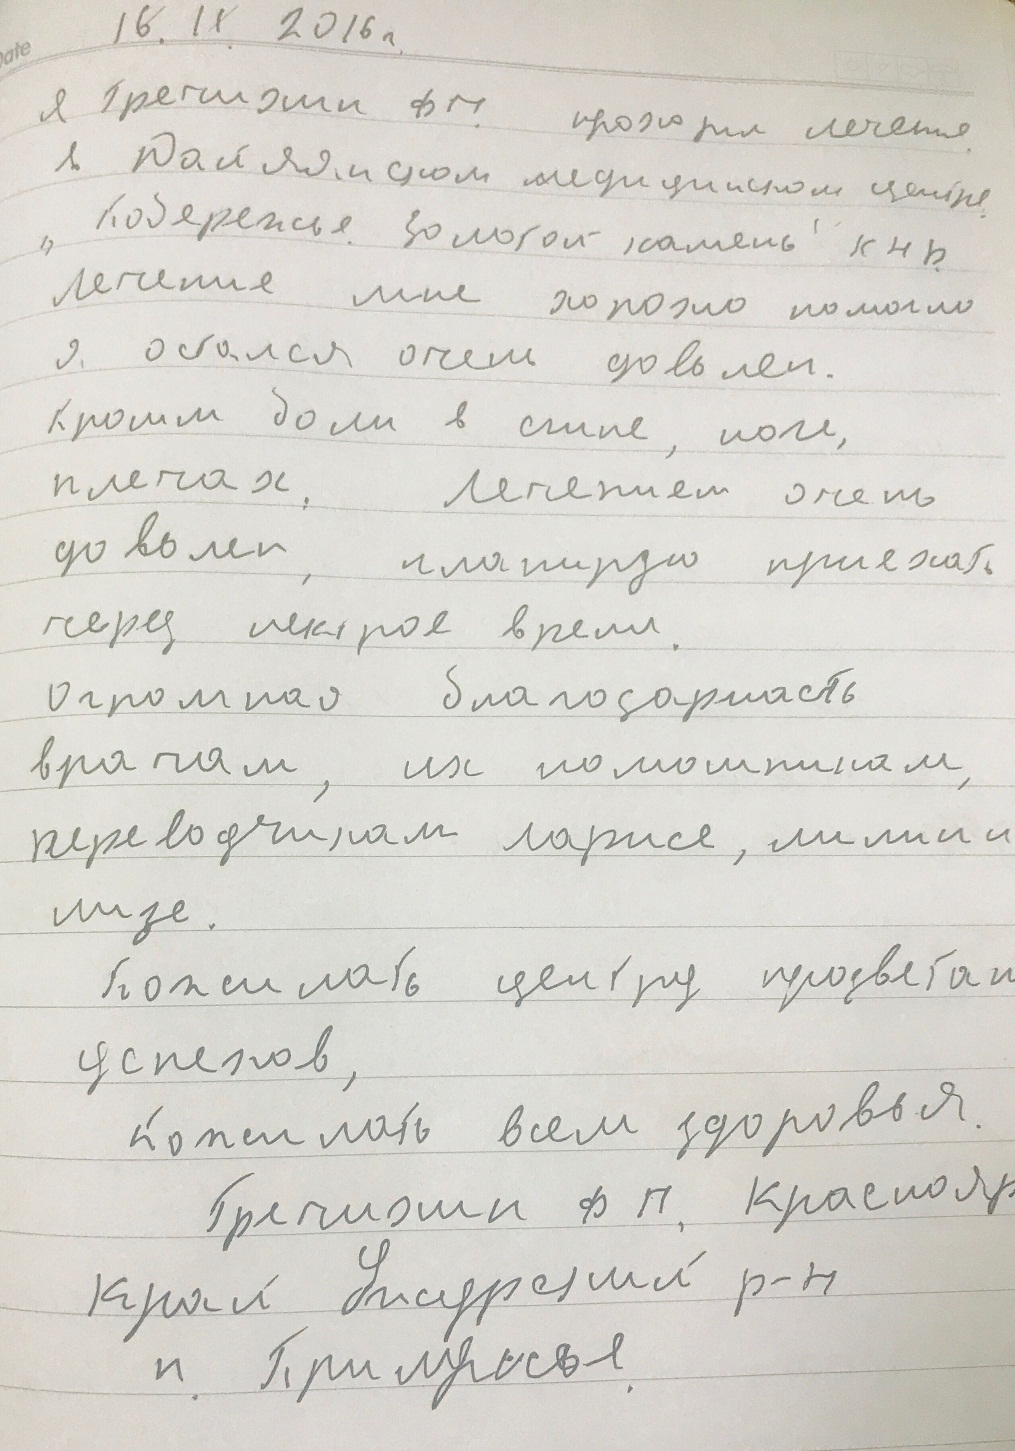 Date
16. IX. 2016г.
я Гречишкин Ф П. проходил лечение
в Даляньском медицинском центре
"Побережье Золотой камень" КНР.
Лечение мне хорошо помогло
я остался очень довьлен.
кромм боли в спине, ноге,
плечах, Лечением очень
довьлен, планирую приехать
через некотрое время.
Огромная благодарность
врачам, их помошникам,
переводчикам ларисе, лилии и
лизе.
Пожилать центру процветан
успехов,
Пожилать всем здоровья.
Гречишкин Ф П. Краснояр
край р-н
п.